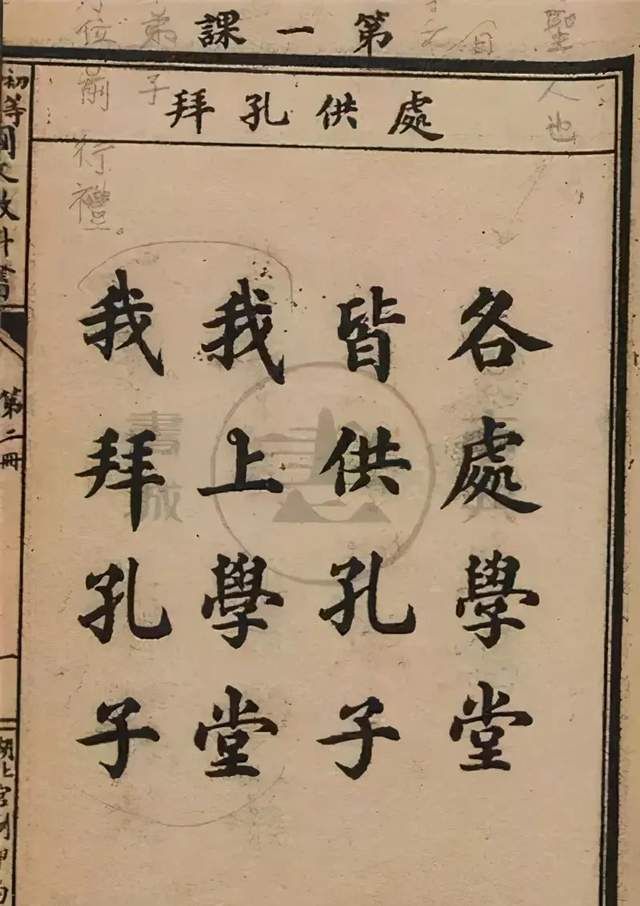 第一課
處供孔拜
各處學堂
皆供孔子
我上學堂
我拜孔子
初等國文教科書
第二冊
一
聖
人也
弟子
位前行禮。
書城